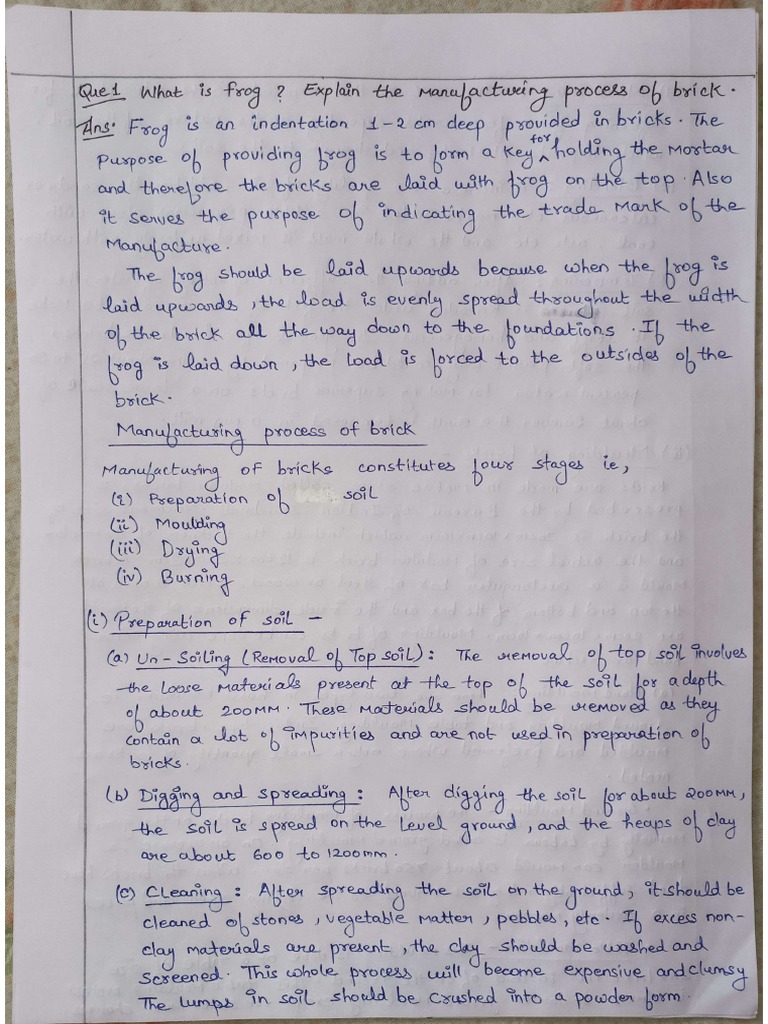 Que 1 What is frog ? Explain the Manufacturing process of brick.
Ans: Frog is an indentation 1-2 cm deep provided in bricks. The
purpose of providing frog is to form a key for holding the Mortar
and therefore the bricks are laid with frog on the top. Also
it serves the purpose of indicating the trade Mark of the
Manufacture.
The frog should be laid upwards because when the frog is
laid upwards, the load is evenly spread throughout the width
of the brick all the way down to the foundations. If the
frog is laid down, the load is forced to the outsides of the
brick.
Manufacturing process of brick
Manufacturing of bricks constitutes four stages ie,
(i) Preparation of soil
(ii) Moulding
(iii) Drying
(iv) Burning
(i) Preparation of soil -
(a) Un-Soiling (Removal of Top soil): The removal of top soil involves
the loose materials present at the top of the soil for a depth
of about 200MM. These Materials should be removed as they
contain a lot of impurities and are not used in preparation of
bricks.
(b) Digging and spreading: After digging the soil for about 200MM,
the soil is spread on the level ground, and the heaps of clay
are about 600 to 1200mm.
(c) Cleaning: After spreading the soil on the ground, it should be
cleaned of stones, vegetable matter, pebbles, etc. If excess non-
clay materials are present, the clay should be washed and
screened. This whole process will become expensive and clumsy
The lumps in soil should be crushed into a powder form.